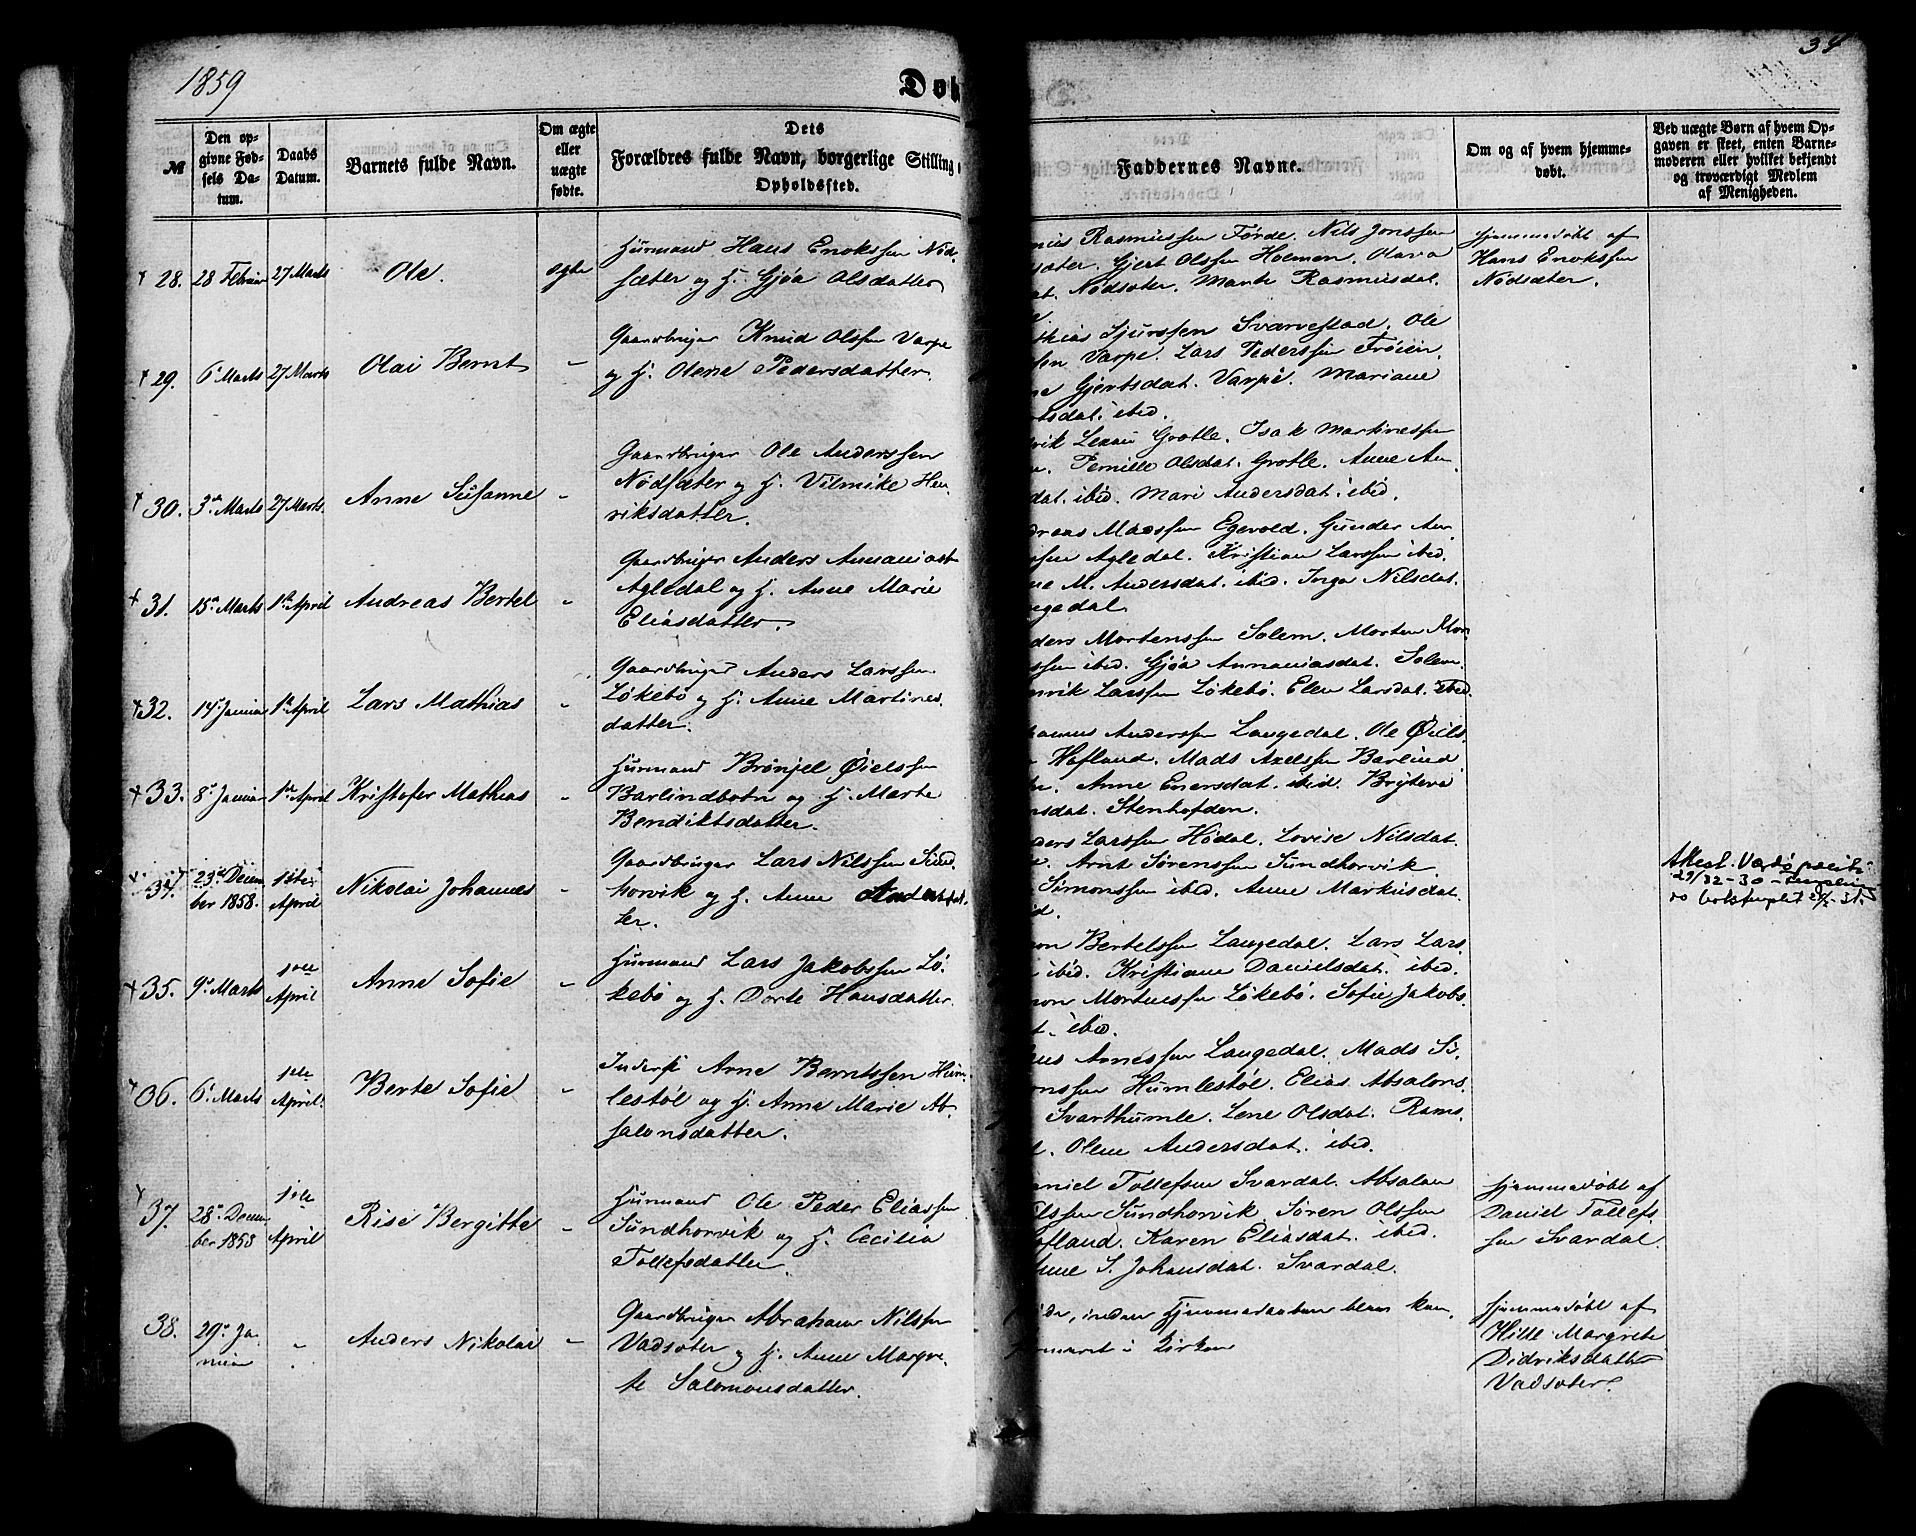 1859
Døb
34
№
Den op-
givne Fød-
sels Da-
tum.
Daabs
Datum.
Barnets fulde Navn.
Om ægte
eller
uægte
fødte.
Dets
Forældres fulde Navn, borgerlige Stilling
Opholdssted.
Faddernes Navne.
Om og af hvem hjemme-
døbt.
Ved uægte Børn af hvem Op-
gaven er skeet, enten Barne-
moderen eller hvilket bekjendt
og troværdigt Medlem
af Menigheden.
28. 28 Februar 27 Marts Ole. egte
Huusmand Hans Enokssen Nød-
sæter og H. Gjøa Olsdatter
Rasmussen Førde. Nils Jonssen
sæter. Gjert Olssen Holmen. Olava
dat. Nødsæter. Marte Rasmusdat.
Hjemmedøbt af
Hans Enokssen
Nødsæter.
29. 6 Marts 27 Marts Olai Bernt -
Gaardbruger Knud Olssen Varpe
og H. Olene Pedersdatter.
thias Sjurssen Svarvestad. Ole
sen Varpe. Lars Pederssen Frøien.
ne Gjertsdat. Varpe. Mariane
tsdat. ibid.
30. 3de Marts 27 Marts Anne Susanne -
Gaardbruger Ole Anderssen
Nødsæter og H. Vilmike Hen-
riksdatter.
rik Lexau Grotle. Isak Martinessen
Pernille Olsdat. Grotle. Anne An-
dat. ibid. Mari Andersdat. ibid.
31. 15de Marts 1ste April Andreas Bertel -
Gaardbruger Anders Ananiass
Agledal og H. Anne Marie
Eliasdatter.
dreas Madssen Egevold. Gunder An-
ssen Agledal. Kristian Larssen ibid.
ne M. Andersdat. ibid. Inga Nilsdat.
ngedal.
32. 14 Januar 1ste April Lars Mathias -
Gaardbruger Anders Larssen
Løkebø og H. Anne Martines-
datter.
ders Mortenssen Solem. Morten Mor-
ssen ibid. Gjøa Annaniasdat. Solem.
nrik Larssen Løkebø. Elen Larsdat. ibid.
33. 8 Januar 1ste April Kristofer Mathias -
Huusmand Brønjel Øielssen
Barlindbotn og H. Marte
Bendiktsdatter.
Anderssen Langedal. Ole Øiels-
Hafland. Mads Axelssen Barlind
Anne Enersdat. ibid. Brÿteva
nsdat. Stenhofden.
34. 23de Decem-
ber 1858. 1ste April Nikolai Johannes -
Gaardbruger Lars Nilssen Sund-
horvik og H. Anne Andersdat-
ter.
ders Larssen Hødal. Lovise Nilsdat.
Arnt Sørenssen Sundhorvik.
Simonssen ibid. Anne Markusdat.
id.
35. 9 Marts 1ste April Anne Sofie -
Huusmand Lars Jakobssen Lø-
kebø og H. Dorte Hansdatter.
mon Bertelssen Langedal. Lars Lars-
ibid. Kristiane Danielsdat. ibid.
mon Løkebø. Sofie Jakobs-
t. ibid.
36. 6 Marts 1ste April Berte Sofie -
Inderst Arne Berntssen Hum-
lestøl og H. Anne Marie Ab-
salonsdatter.
Arnessen Langedal. Mads Si-
onssen Humlestøl. Elias Absalons-
Svarthumle. Lene Olsdat. Rams-
t. Oline Andersdat. ibid.
37. 28 Decem-
ber 1858 1ste April Rise Bergitte -
Huusmand Ole Peder Eliassen
Sundhorvik og H. Cecilia
Tollefsdatter.
aniel Tollefsen Svardal. Absalon
elssen Sundhorvik. Søren Olssen
afland. Karen Eliasdat. ibid.
nne S. Johansdat. Svardal.
Hjemmedøbt af
Daniel Tollefs-
sen Svardal.
38. 29 Ja-
nuar " Anders Nikolai -
Gaardbruger Abraham Nilssen
Vadsæter og H. Anne Margre-
te Salomonsdatter.
inden Hjemmedaaben blev kon-
firmeret i Kirken
Hjemmedøbt af
Hille Margrete
Didriksdatter
Vadsæter.